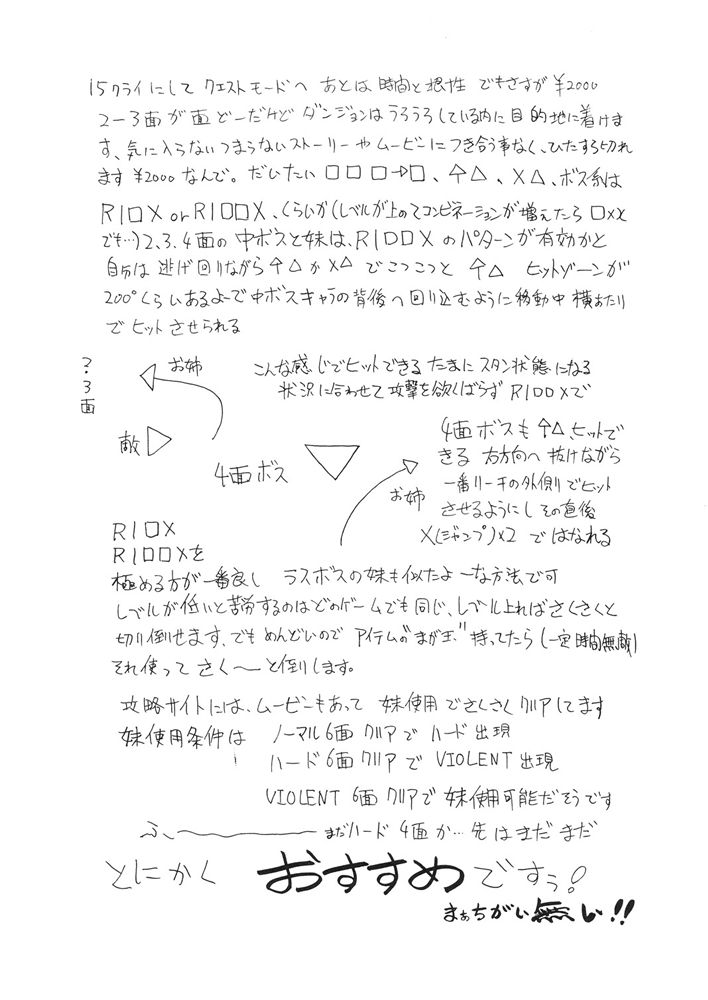 15クライにして クエストモードへ あとは 時間と根性 でもさすが¥2000
2-3面が面どーだけど ダンジョンはうろうろしている内に目的地に着けま
す、気に入らないつまらないストーリーやムービーにつき合う事なく、ひたすら切れ
ます ¥2000なんで。だいたい □□□→□、↑△、X△、ボス系は
R1□X or R1□□X、くらいか(レベルが上のてコンビネーションが増えたら □××
でも…)2.3.4面の中ボスと妹は、R1□□Xのパターンが有効かと
自分は 逃げ回りながら ↑△か X△でこつこつと ↑△ ヒットゾーンが
200°くらいあるよーで中ボスキャラの背後へ回り込むように移動中 横あたり
でヒットさせられる
?.3面
お姉
こんな感じでヒットできる たまに スタン状態になる
状況に合わせて攻撃を欲くばらず R1□□Xで
敵
4面ボス
お姉
4面ボスも ↑△、ヒットで
きる 右方向へ 抜けながら
一番リーチの外側でヒット
させるようにし その直後
X(ジャンプ)×2 ではなれる
R1□X
R1□□Xを
極める方が一番良し ラスボスの妹も似たよーな方法で可
レベルが低いと苦労するのはどのゲームでも同じ、レベル上ればさくさくと
切り倒せます、でも めんどいので アイテムの"まが玉"持ってたら(一定時間無敵)
それ使って さく〜と倒します。
攻略サイトには、ムービーもあって 妹使用でさくさくクリアしてます
妹使用条件は ノーマル6面クリアで ハード出現
ハード6面クリアで VIOLENT出現
VIOLENT 6面クリアで 妹使用可能だそうです
ふ、〜 まだハード 4面か…先はまだまだ
とにかく おすすめですぅ!
まぁちがい無し!!